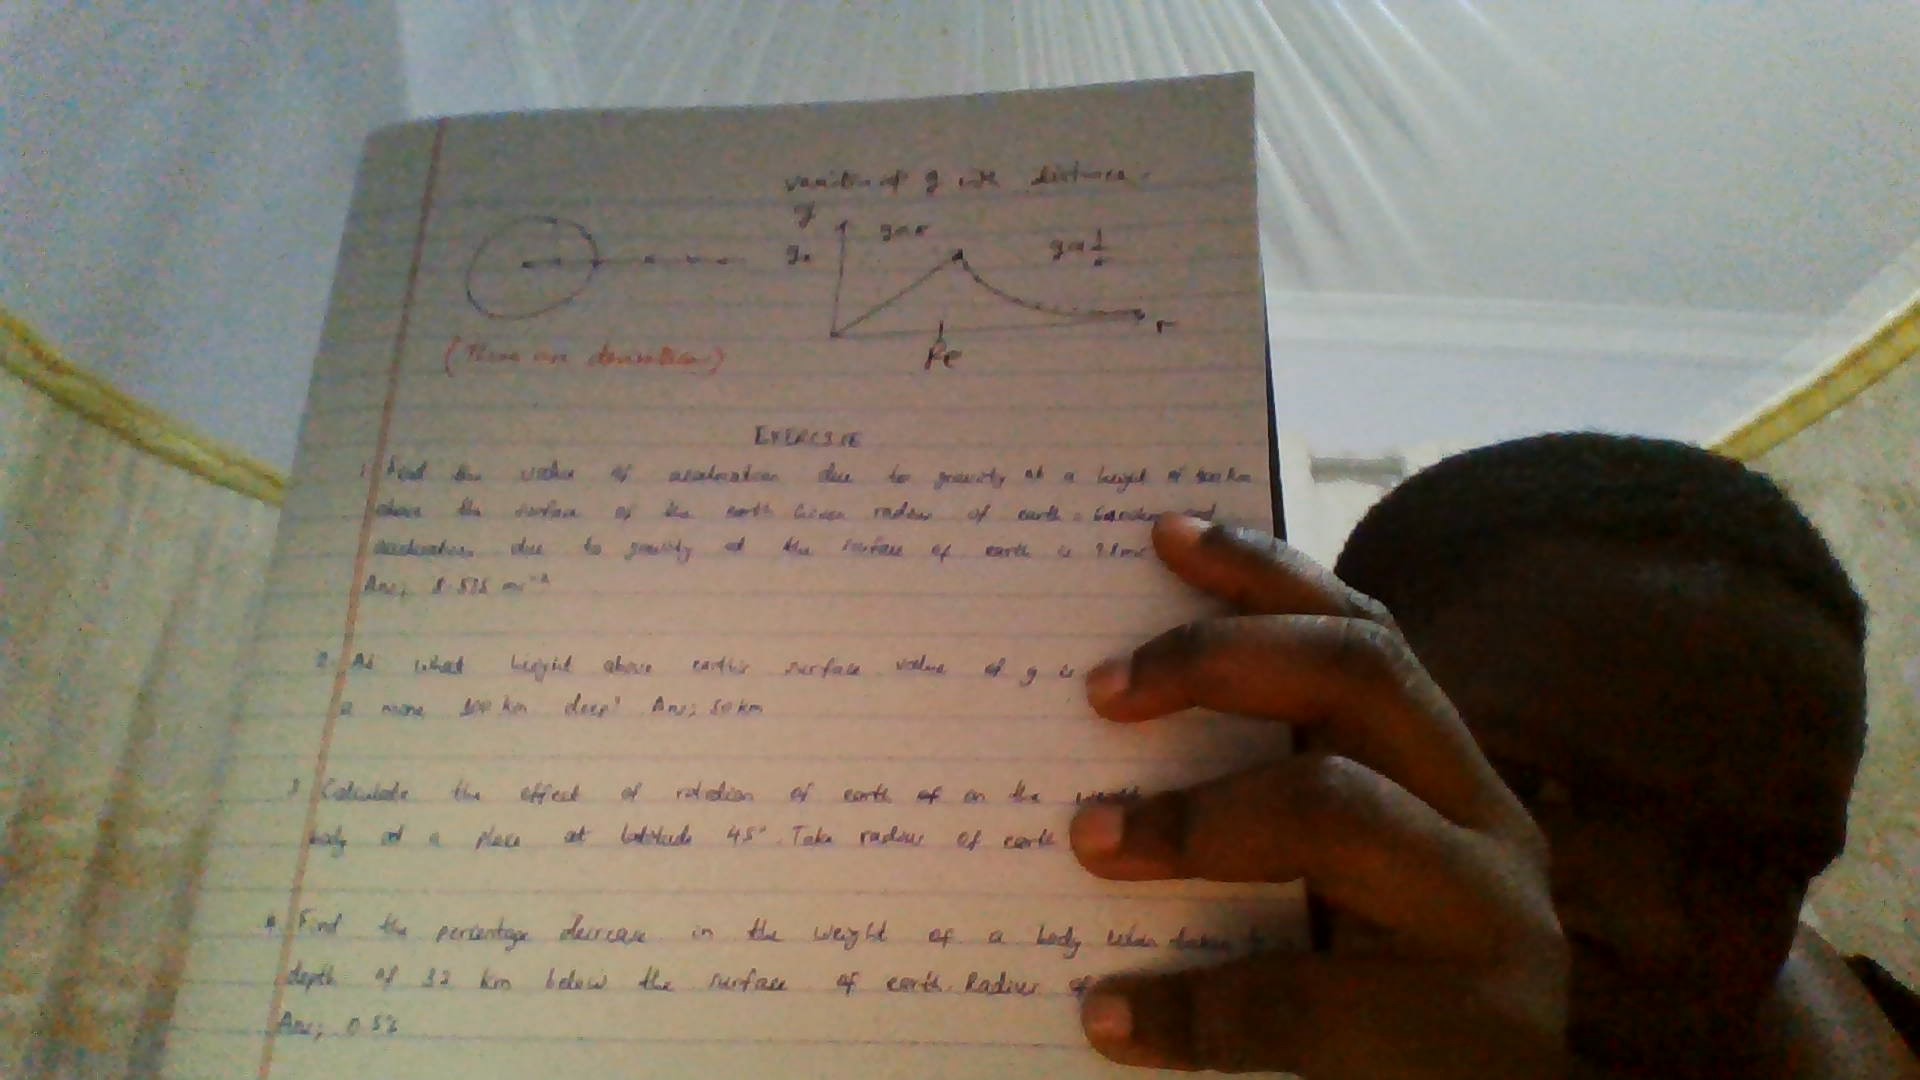 variation of g with distance.
g
g∝r
g∝1/r
g₀
r
Re
(There are derivation)
EXERCSIE
1. Find the value of acceleration due to gravity at a height of km
above the surface of the earth Given radius of earth = and
acceleration due to gravity at the surface of earth is 9.8ms
Ans; 8.575 ms⁻²
2. At what height above earth's surface value of g is
a mine 100 km deep? Ans; 50 km
3 Calculate the effect of rotation of earth of on the weight
body at a place at latitude 45°. Take radius of earth
4. Find the percentage decrease in the weight of a body when taken to
depth of 32 km below the surface of earth. Radius of
Ans; 0.5%